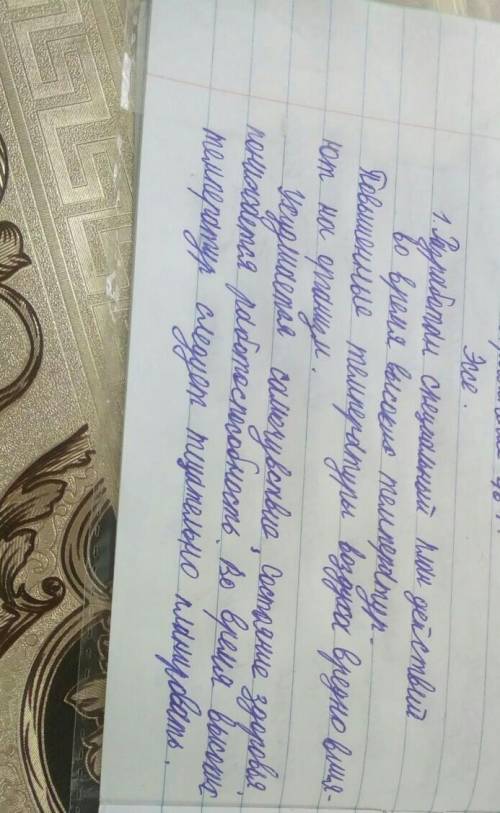 Эже.
1. Разработай специальный план действий
во время высокой температур.
Повышенные температуры воздуха вредно влия-
ют на
ухудшается самочувствие, состояние здоровья
понижается работоспособность. Во время высоких
температур следует тщательно планировать.